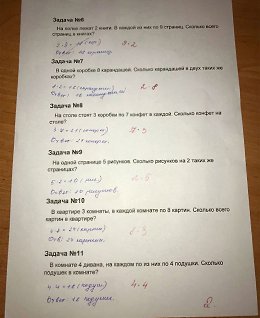 Задача №6
На полке лежат 2 книги. В каждой из них по 9 страниц. Сколько всего
страниц в книгах?
9·2
Ответ: 18 страниц.
Задача №7
В одной коробке 8 карандашей. Сколько карандашей в двух таких же
коробках?
8·2=16 (карандашей)
2·8
Ответ: 16
Задача №8
На столе стоят 3 коробки по 7 конфет в каждой. Сколько конфет на
столе?
3·7=21 (конфет)
7·3
Ответ: 21 конфет.
Задача №9
На одной странице 5 рисунков. Сколько рисунков на 2 таких же
страницах?
5·2=10 (рис.)
2·5
Ответ: 10 рисунков.
Задача №10
В квартире 3 комнаты, в каждой комнате по 8 картин. Сколько всего
картин в квартире?
=24 (картин)
Ответ: 24 картин.
Задача №11
В комнате 4 дивана, на каждом по из них по 4 подушки. Сколько
подушек в комнате?
4·4=16 (подуш)
4·4
Ответ: 16 подушек.